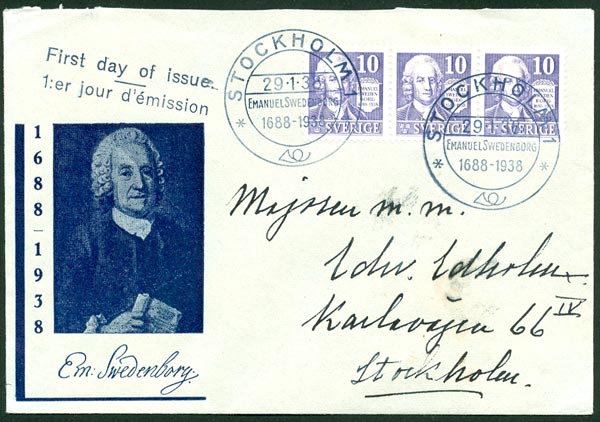 First day of issue
1:er jour d'émission
1688-1938
Em: Swedenborg.
STOCKHOLM 1
29·1·38
EMANUEL SWEDENBORG
1688-1938
10
SVERIGE
10
EMANUEL
SWEDEN
BORG
SVERIGE
10
SVERIGE
STOCKHOLM 1
29·1·38
EMANUEL SWEDENBORG
1688-1938
m. m.
Edw. Edholm
Karlavägen 66 IV
Stockholm.